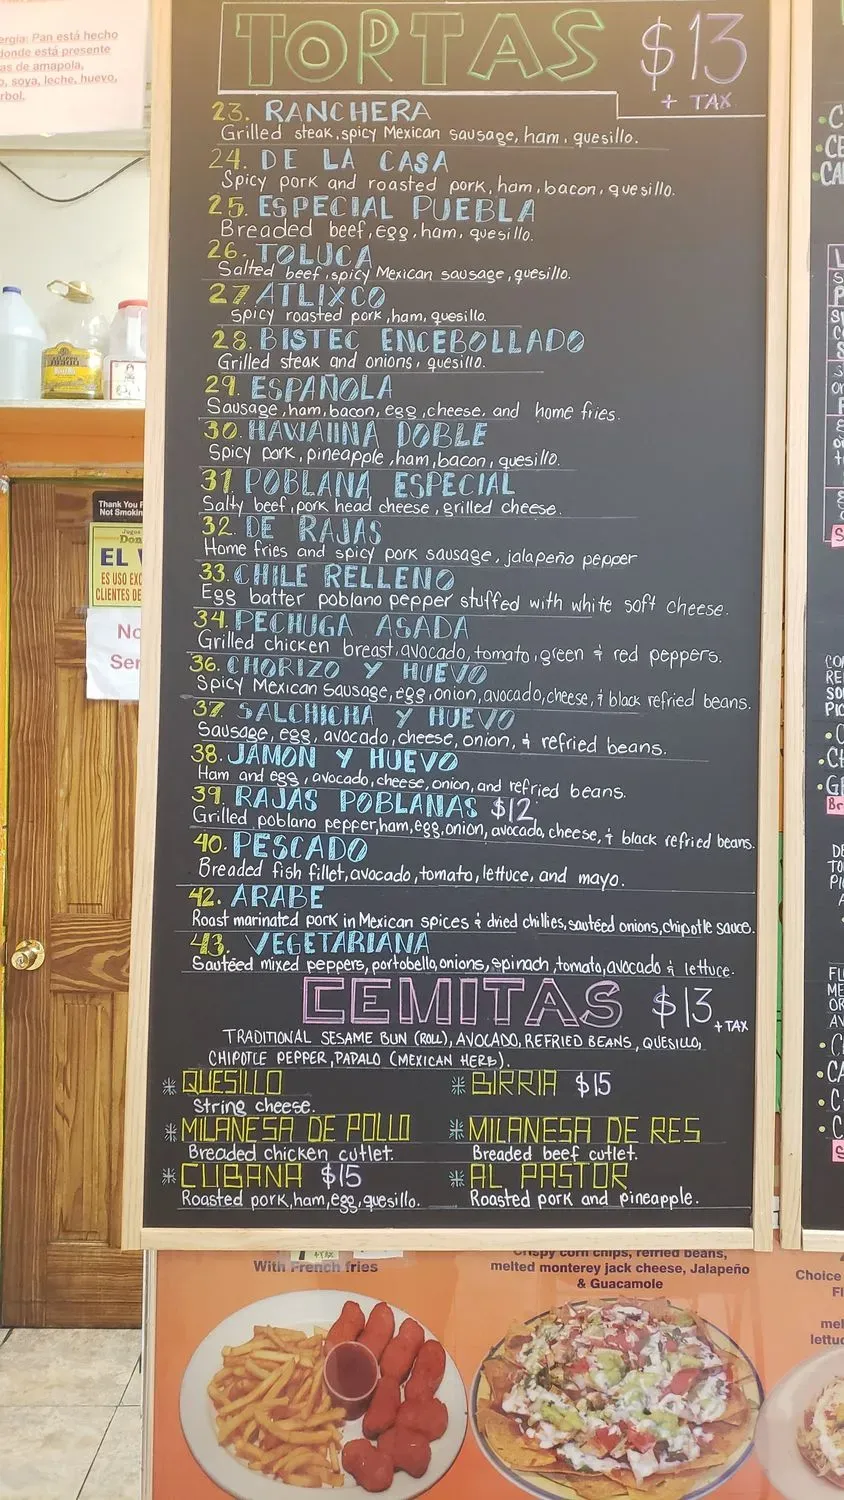 ergia: Pan está hecho
donde está presente
as de amapola,
o, soya, leche, huevo,
rbol.
TORTAS $13
+ TAX
23. RANCHERA
Grilled steak, spicy Mexican sausage, ham, quesillo.
24. DE LA CASA
Spicy pork and roasted pork, ham, bacon, quesillo.
25. ESPECIAL PUEBLA
Breaded beef, egg, ham, quesillo.
26. TOLUCA
Salted beef, spicy Mexican sausage, quesillo.
27 ATLIXCO
Spicy roasted pork, ham, quesillo.
28. BISTEC ENCEBOLLADO
Grilled steak and onions, quesillo.
29. ESPAÑOLA
Sausage, ham, bacon, egg, cheese, and home fries.
30. HAWAIINA DOBLE
Spicy pork, pineapple, ham, bacon, quesillo.
31 POBLANA ESPECIAL
Salty beef, pork head cheese, grilled cheese.
32. DE RAJAS
Home fries and spicy pork sausage, jalapeño pepper
33. CHILE RELLENO
Egg batter poblano pepper stuffed with white soft cheese.
34. PECHUGA ASADA
Grilled chicken breast, avocado, tomato, green & red peppers.
36. CHORIZO Y HUEVO
Spicy Mexican sausage, egg, onion, avocado, cheese, & black refried beans.
37. SALCHICHA Y HUEVO
Sausage, egg, avocado, cheese, onion, & refried beans.
38. JAMON Y HUEVO
Ham and egg, avocado, cheese, onion, and refried beans.
39. RAJAS POBLANAS $12
Grilled poblano pepper, ham, egg, onion, avocado, cheese, & black refried beans.
40. PESCADO
Breaded fish fillet, avocado, tomato, lettuce, and mayo.
42. ARABE
Roast marinated pork in Mexican spices & dried chillies, sautéed onions, chipotle sauce.
43. VEGETARIANA
Sautéed mixed peppers, portobello, onions, spinach, tomato, avocado & lettuce.
CEMITAS $13 + TAX
TRADITIONAL SESAME BUN (ROLL), AVOCADO, REFRIED BEANS, QUESILLO,
CHIPOTLE PEPPER, PAPALO (MEXICAN HERB).
* QUESILLO
String cheese.
* BIRRIA $15
* MILANESA DE POLLO
Breaded chicken cutlet.
* MILANESA DE RES
Breaded beef cutlet.
* CUBANA $15
Roasted pork, ham, egg, quesillo.
* AL PASTOR
Roasted pork and pineapple.
Thank You F
Not Smokin
Don
EL
ES USO EXC
CLIENTES DE
No
Ser
With French fries
Crispy corn chips, refried beans,
melted monterey jack cheese, Jalapeño
& Guacamole
Choice
Fl
mel
lettuc